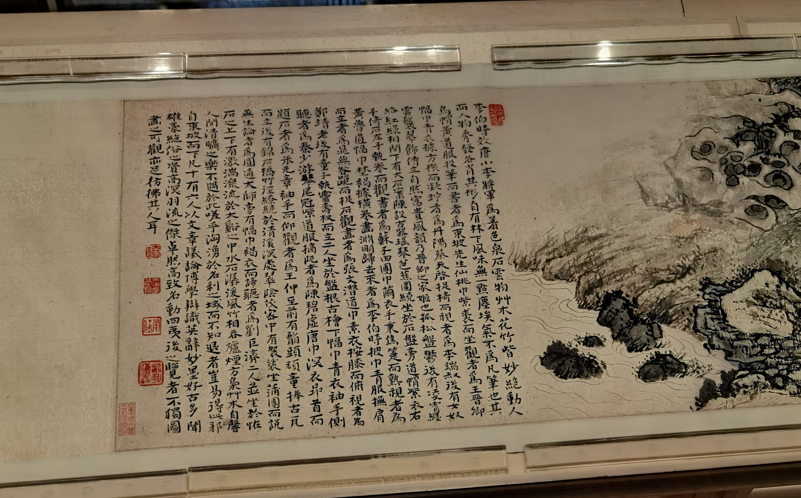 李伯時效唐小李將軍為著色泉石雲物艸木花竹皆妙絕動人
而人物秀發各肖其形自有林下風味無一點塵埃氣不為凡筆也其
烏帽黃道服捉筆而書者為東坡先生仙桃巾紫裘而坐觀者為王晉卿
幅巾青衣據方機而凝竚者為丹陽蔡天啟捉椅而視者為李端叔後有女奴
雲鬟翠飾侍立自然富貴風韻乃晉卿之家姬也孤松盤鬱後有凌霄纏
絡紅綠相間下有大石案陳設古器瑤琴芭蕉圍繞坐於石盤旁道帽紫衣右
手倚石左手執卷而觀書者為蘇子由團巾繭衣手秉蕉箑而熟視者為
黃魯直幅巾野褐據橫卷畫淵明歸去來者為李伯時披巾青服撫肩
而立者為晁無咎跪而捉石觀畫者為張文潛道巾素衣按膝而俯視者為
鄭靖老後有童子執靈壽杖而立二人坐於盤根古檜下幅巾青衣袖手側
聽者為秦少游琴尾冠紫道服摘阮者為陳碧虛唐巾深衣昂首而
題石者為米元章袖手而仰觀者為王仲至前有鬅頭頑童捧古硯
而立後有錦石橋竹徑繚繞於清溪深處翠陰茂密中有袈裟坐蒲團而說
無生論者為圓通大師旁有幅巾褐衣而諦聽者為劉巨濟二人並坐於怪
石之上下有激湍淙流於大溪之中水石潺湲風竹相吞爐煙方裊草木自馨
人間清曠之樂不過於此嗟乎洶湧於名利之域而不知退者豈易得此耶
自東坡而下凡十有六人以文章議論博學辨識英辭妙墨好古多聞
雄豪絕俗之資高深羽流之傑卓然高致名動四夷後之覽者不獨圖
畫之可觀亦足彷彿其人耳